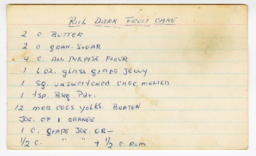 Rich Dark Fruit Cake
2 c. Butter
2 c. gran. sugar
4 c. all purpose flour
1 6 oz. glass grape jelly
1 sq. unsweetened choc. melted
1 tsp. Bkg Pdr.
12 med eggs yolks beaten
Juc. of 1 orange
1 c. grape juc or—
1/2 c. " " + 1/2 c. rum